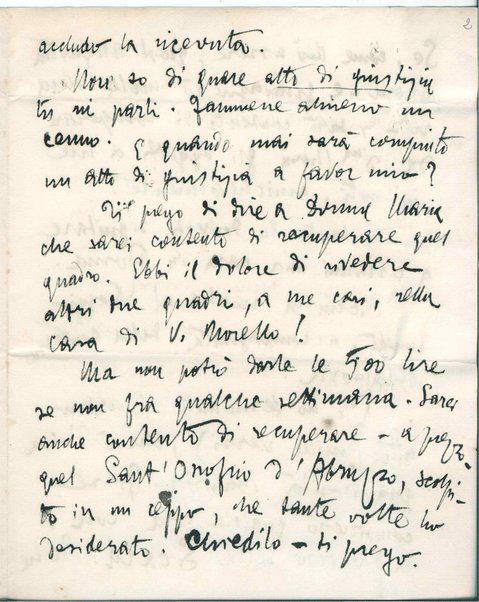 2
accludo la ricevuta.
Non so di quale atto di giustizia
tu mi parli. Dammene almeno un
cenno. E quando mai sarà compiuto
un atto di giustizia a favor mio?
Ti prego di dire a Donna Maria
che sarei contento di recuperare quel
quadro. Ebbi il dolore di rivedere
altri due quadri, a me cari, nella
casa di V. Morello!
Ma non potrò darle le 500 lire
se non fra qualche settimana. Sarei
anche contento di recuperare – a prezzo –
quel Sant'Onofrio d'Abruzzo, scolpi-
to in un ceppo, che tante volte ho
desiderato. Chiedilo – ti prego.